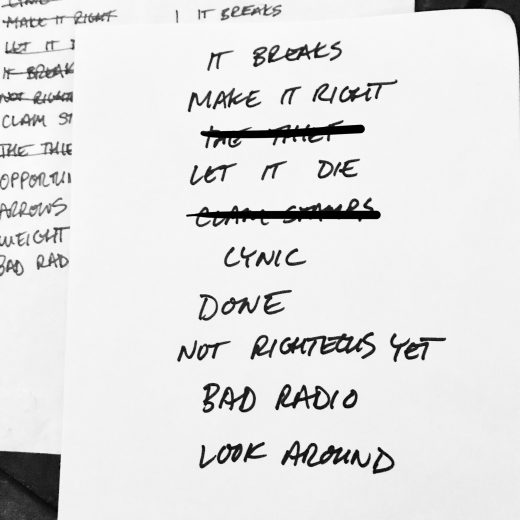 MAKE IT RIGHT
LET IT
IT BREAK
NOT RIGH
CLAM ST
THE THIE
OPPORTUNI
ARROWS
WEIGHT
BAD RAD
| IT BREAKS
IT BREAKS
MAKE IT RIGHT
THE THIEF
LET IT DIE
CLAM STAMPS
CYNIC
DONE
NOT RIGHTEOUS YET
BAD RADIO
LOOK AROUND